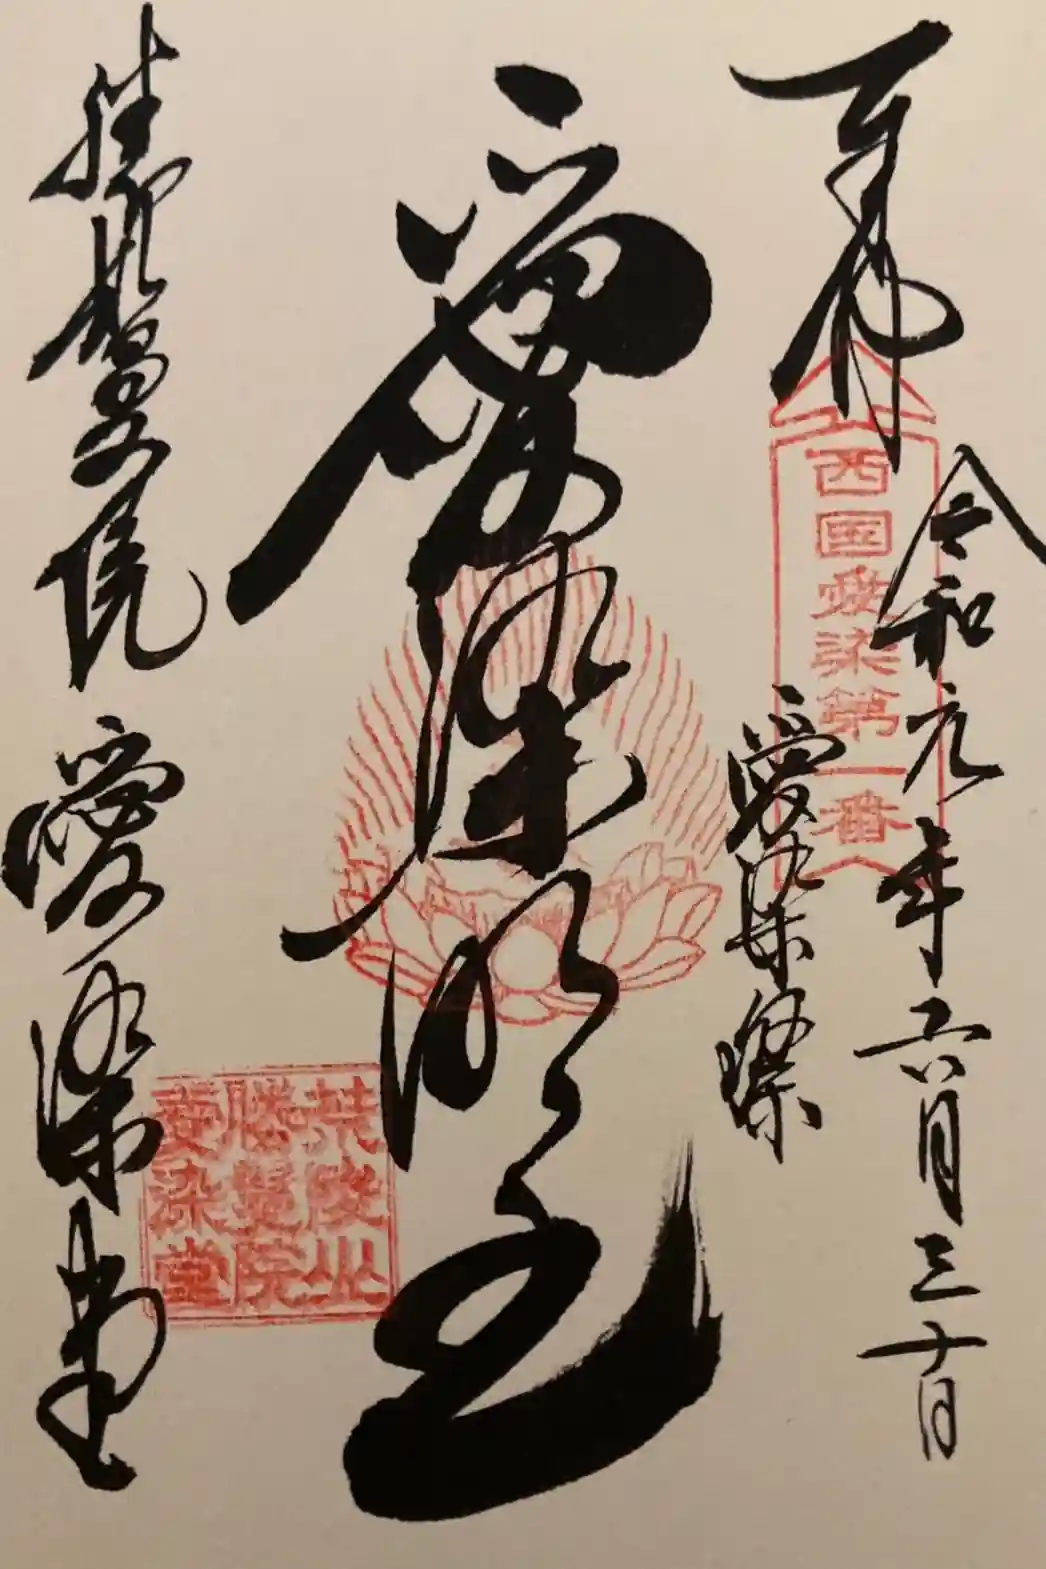 奉拝
西国愛染第一番
令和元年六月三十日
愛染祭
愛染明王
荒陵山
勝鬘院
愛染堂
勝鬘院 愛染堂